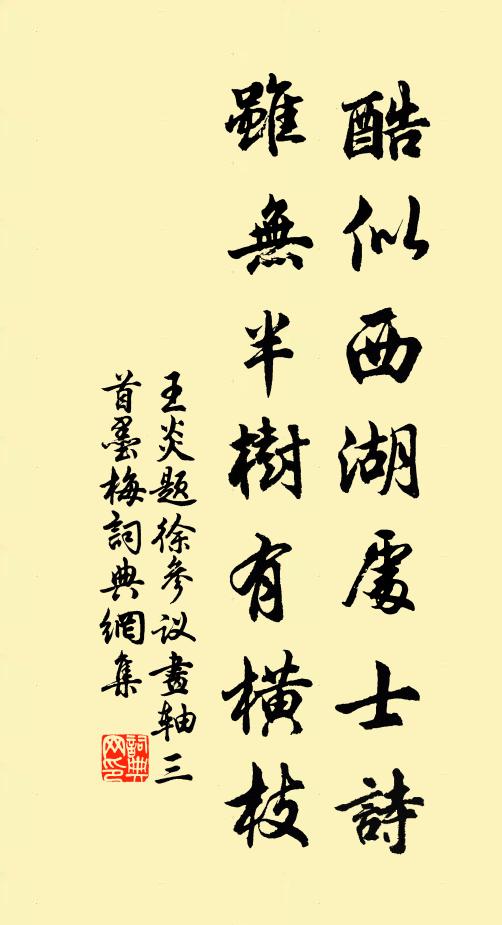 酷似西湖處士詩
雖無半樹有橫枝
王炎題徐參议畫轴三
首墨梅詞典網集
詞典網印